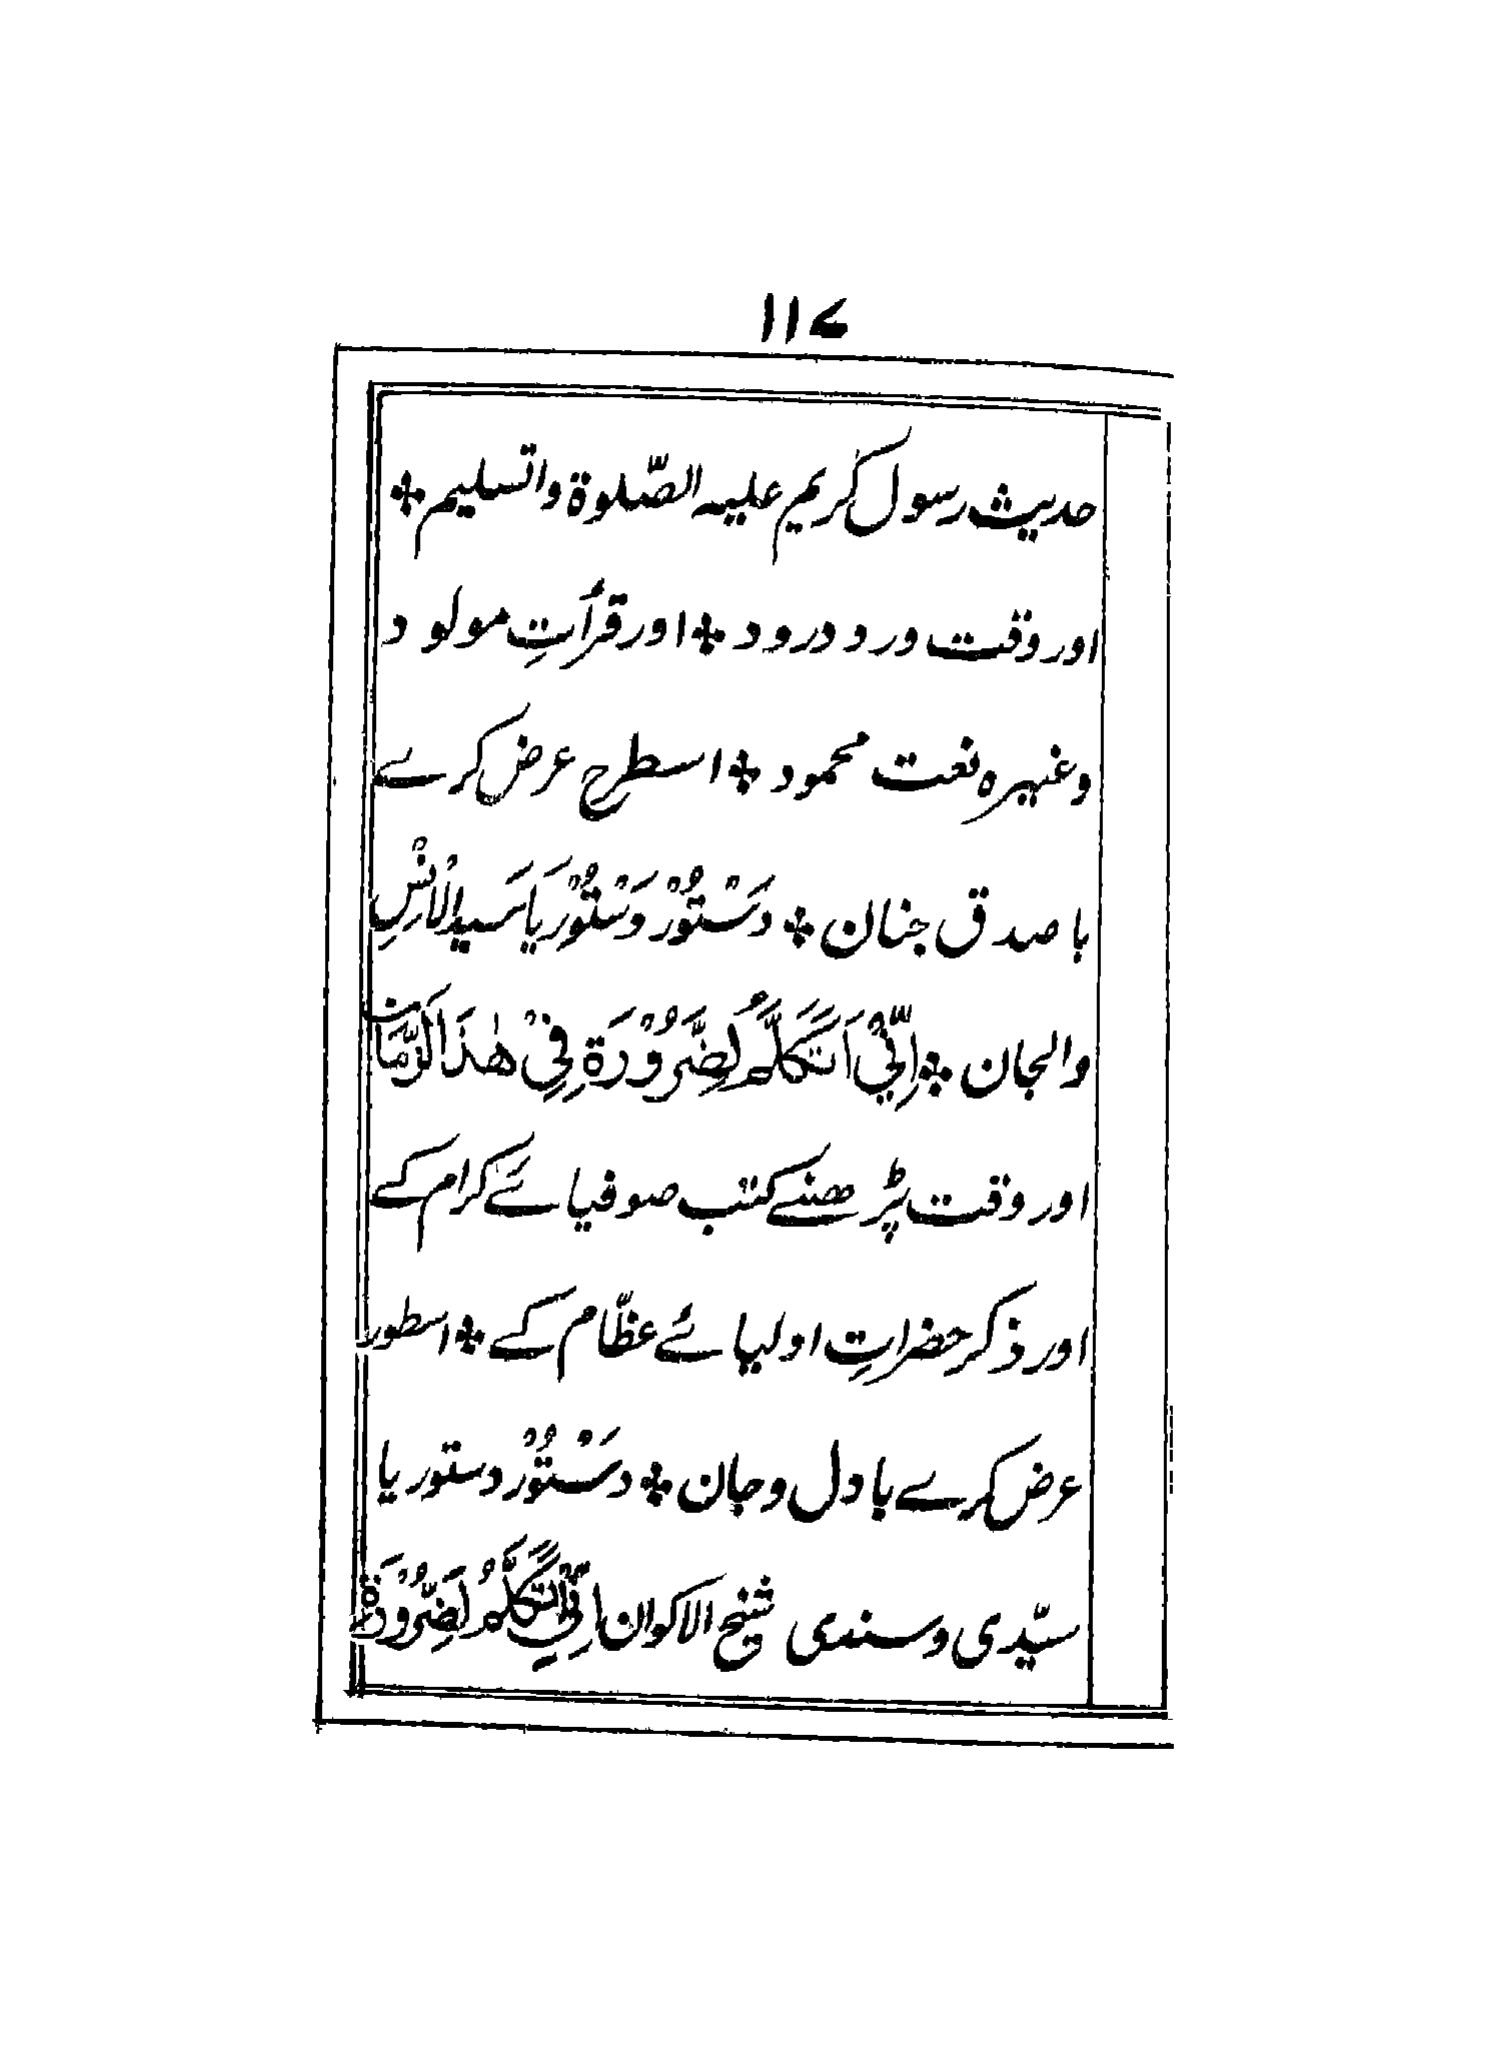 ۱۱۷
حدیث رسول کریم علیہ الصّلوة واتسلیم ❖
اور وقت ورد درود ❖ اور قرأتِ مولود
وغیرہ نعت محمود ❖ اسطرح عرض کرے
با صدق جنان ❖ دَسْتُوْرْ دَسْتُوْر یَا سَیدِ الْاُنْسِ
والجان ❖ اِنِّیْ اَتَکَلَّمُ لِضَّرُوْرَةِ فِیْ هٰذَا الزَّمَان
اور وقت پڑھنے کتب صوفیائے کرام کے
اور ذکر حضراتِ اولیائے عظّام کے ❖ اسطور
عرض کرے بادل وجان ❖ دَسْتُوْرْ دستور یا
سیّدی وسندی شیخ الاکوان اِنِّیْ اَتَکَلَّمُ لِضَّرُوْرَةِ